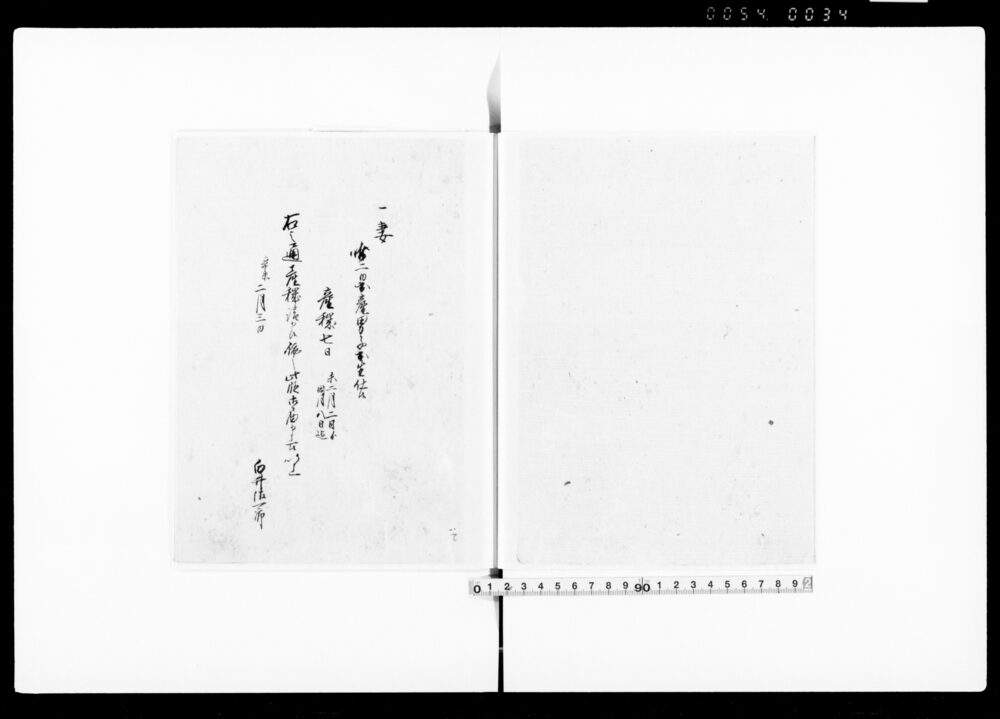 0054 0034
一 妻
昨二日男子出生仕候
産穢七日
未二月二日より
同月八日迄
右之通産穢請申候依之此段御届申上候以上
辛未
二月三日
白井
0 1 2 3 4 5 6 7 8 9 90 1 2 3 4 5 6 7 8 9 2